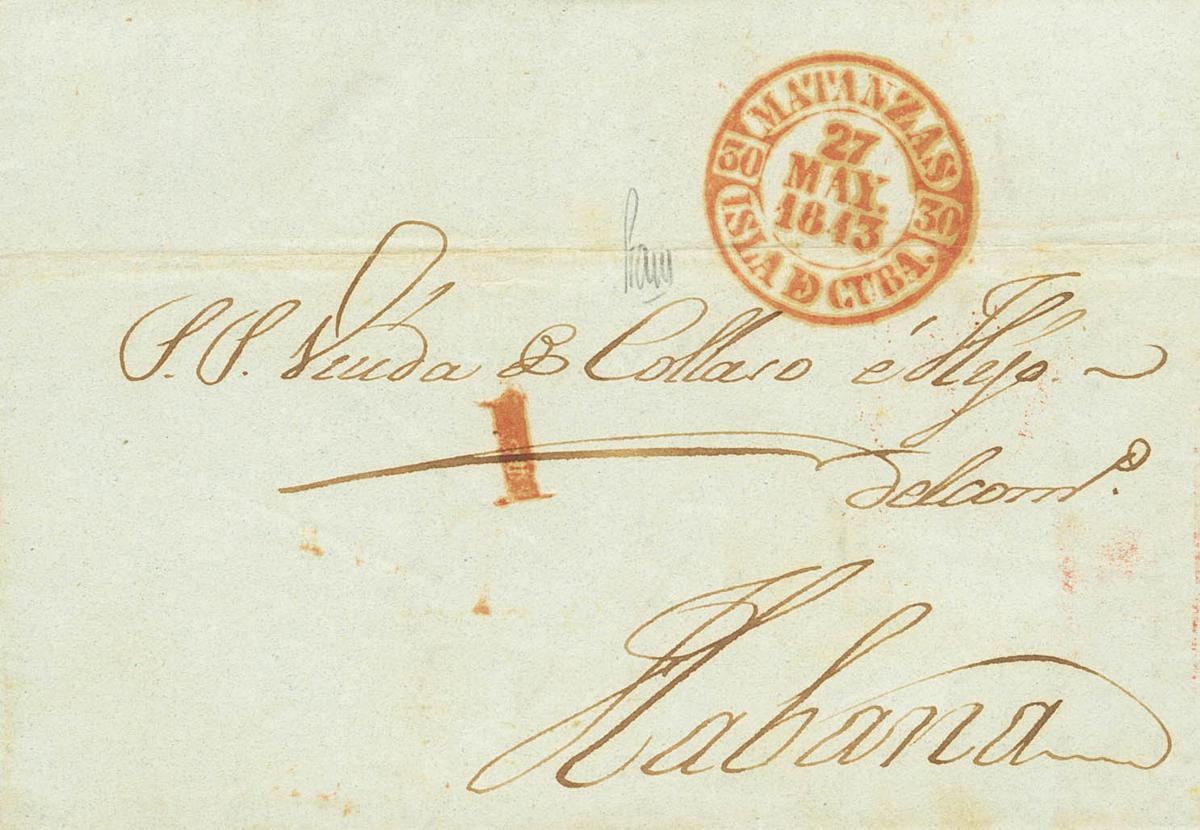 MATANZAS
30 30
27
MAY.
1843
ISLA DE CUBA.
S.S. Viuda de Collaso é Hijo.
1
delcom.º
Habana